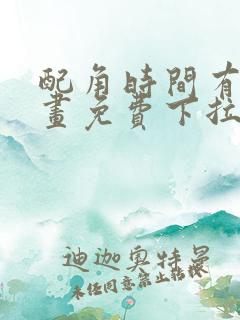 配角時間有
畫免費下拉
迪迦奧特曼
未經同意禁止轉載